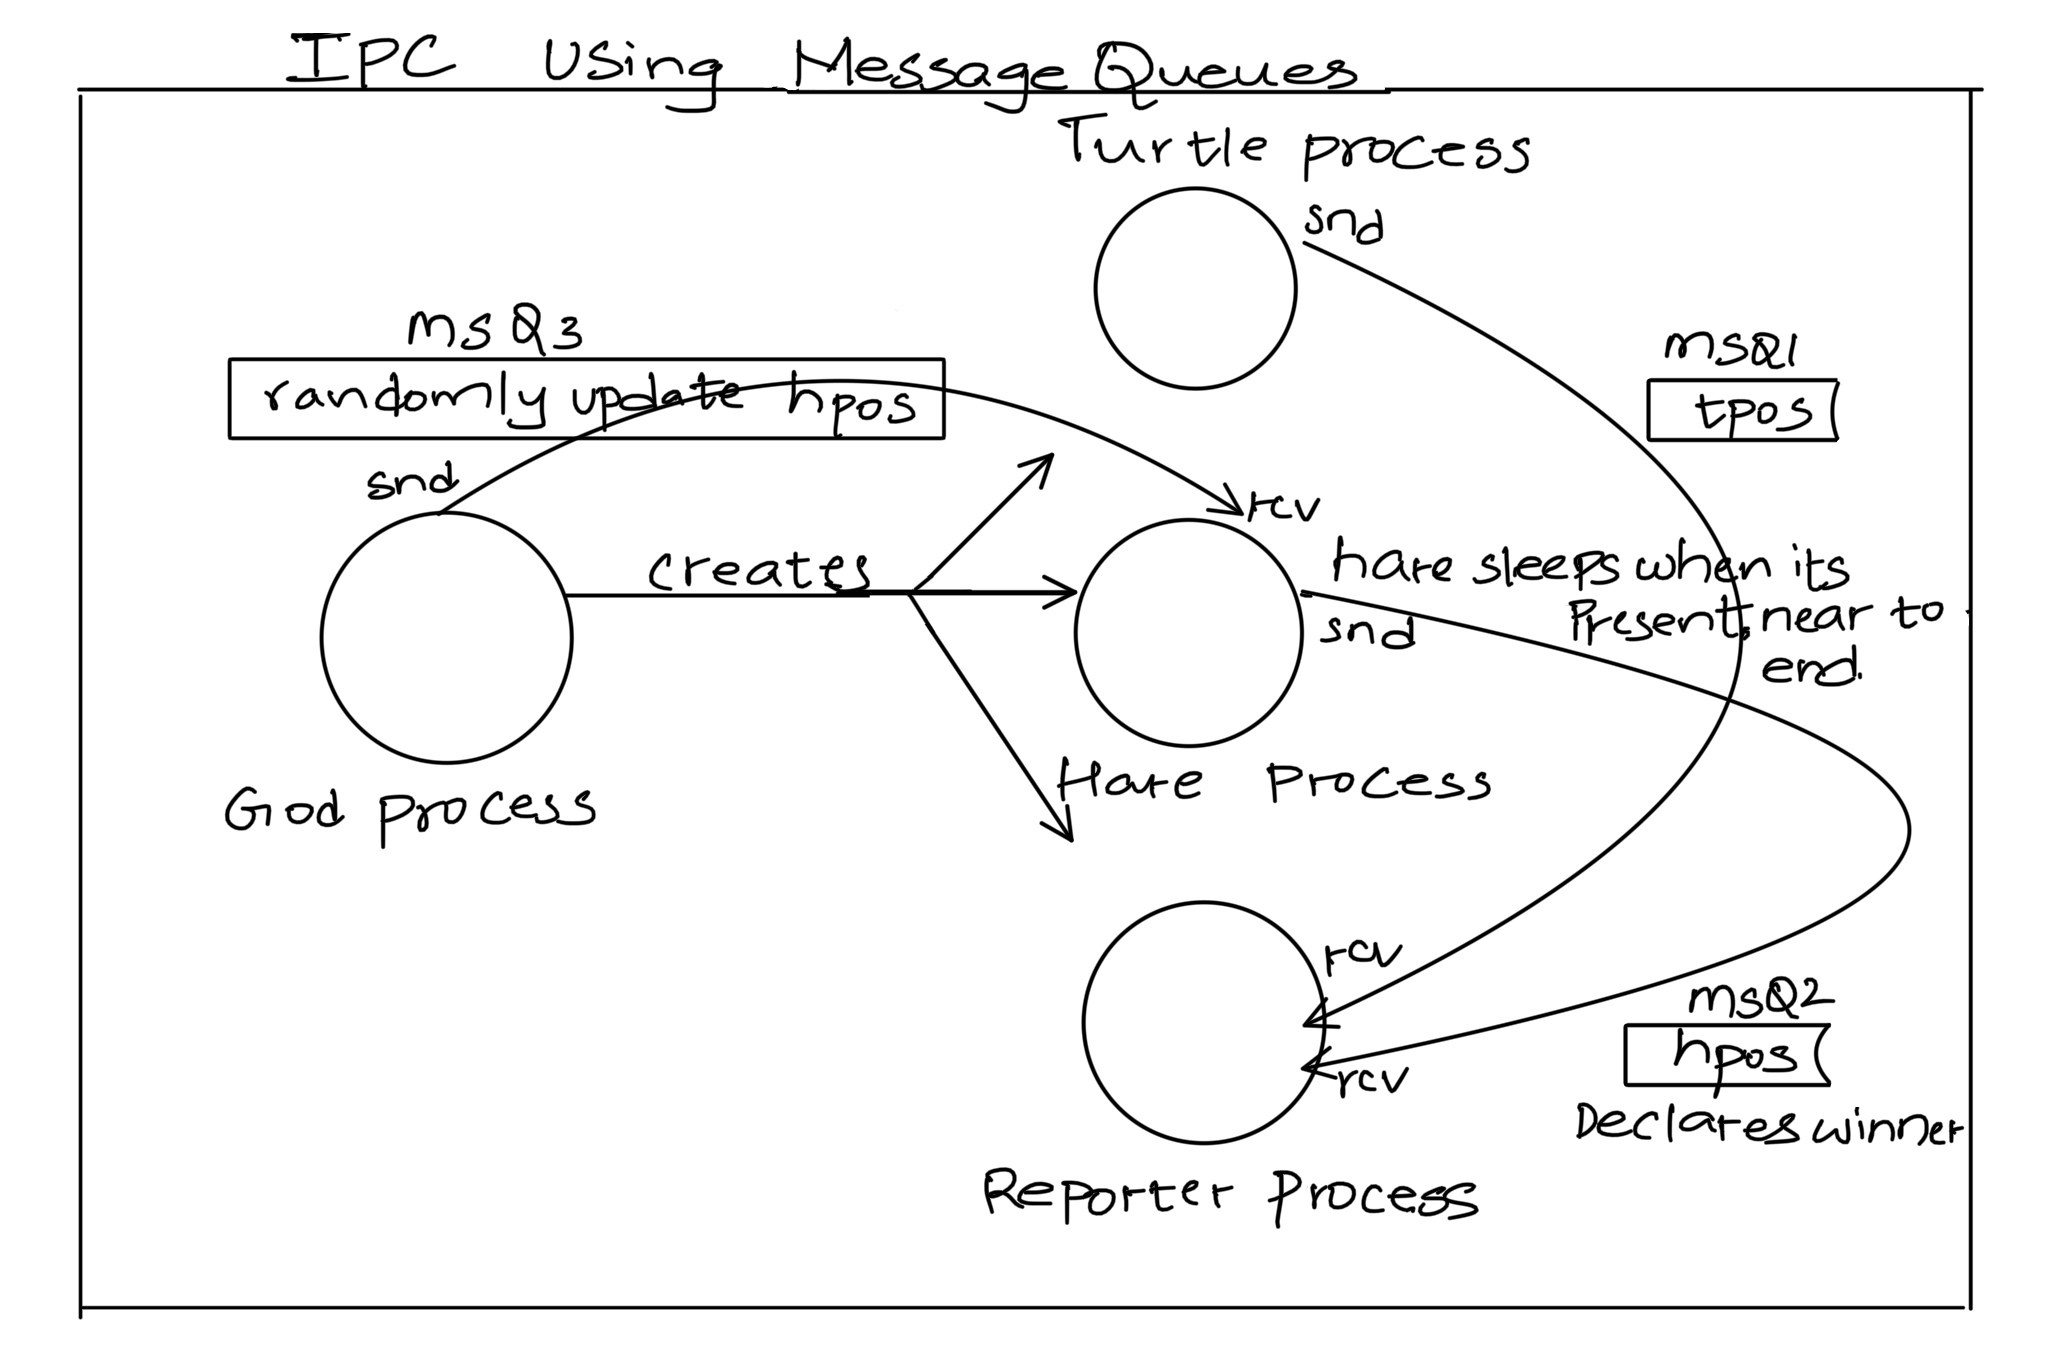 IPC Using Message Queues
Turtle process
snd
msQ3
randomly update hpos
msQ1
tpos
snd
rcv
creates
hare sleeps when its
Present near to
end.
snd
God process
Hare Process
rcv
msQ2
hpos
rcv
Declares winner
Reporter Process